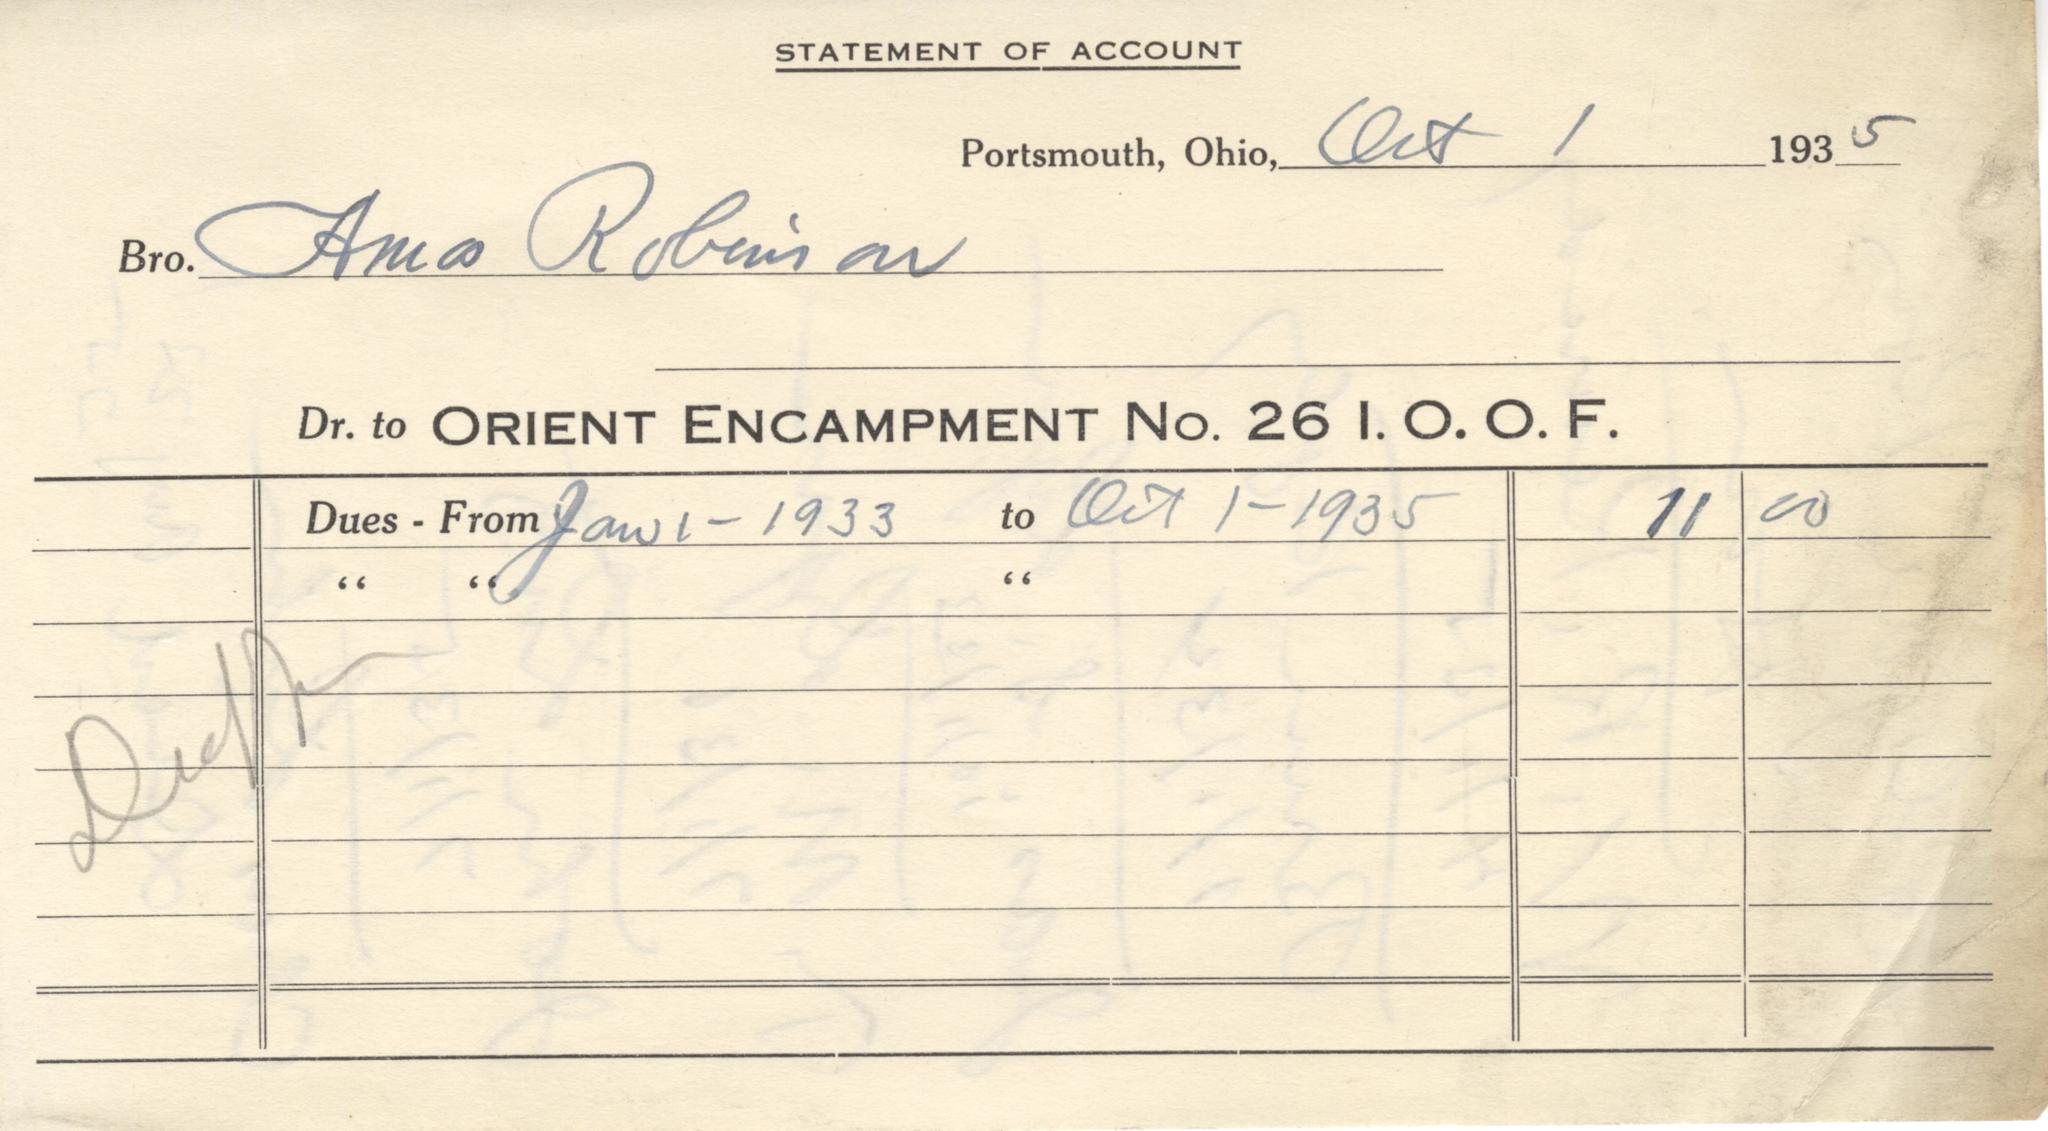 STATEMENT OF ACCOUNT
Portsmouth, Ohio, Oct 1 1935
Bro. Amos Robinson
Dr. to ORIENT ENCAMPMENT No. 26 I. O. O. F.
Dues - From Jan 1 - 1933 to Oct 1 - 1935 11 00
“ “ “